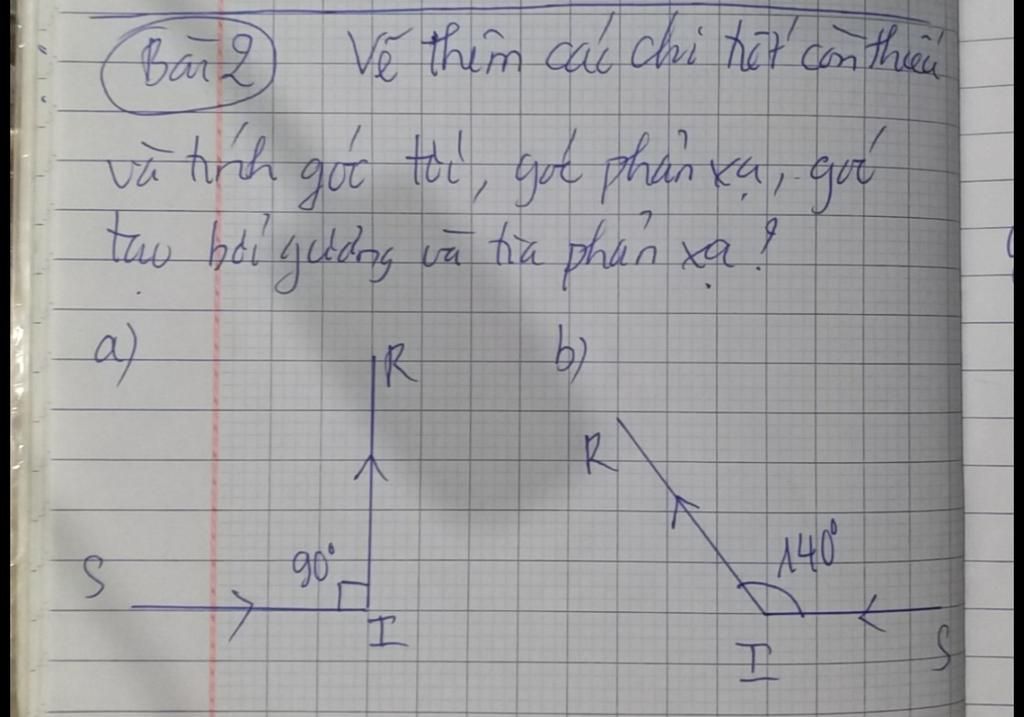 Bài 2 Vẽ thêm các chi tiết còn thiếu
và tính góc tới, góc phản xạ, góc
tạo bởi gương và tia phản xạ?
a) R b)
R
90° 140°
S
I I S